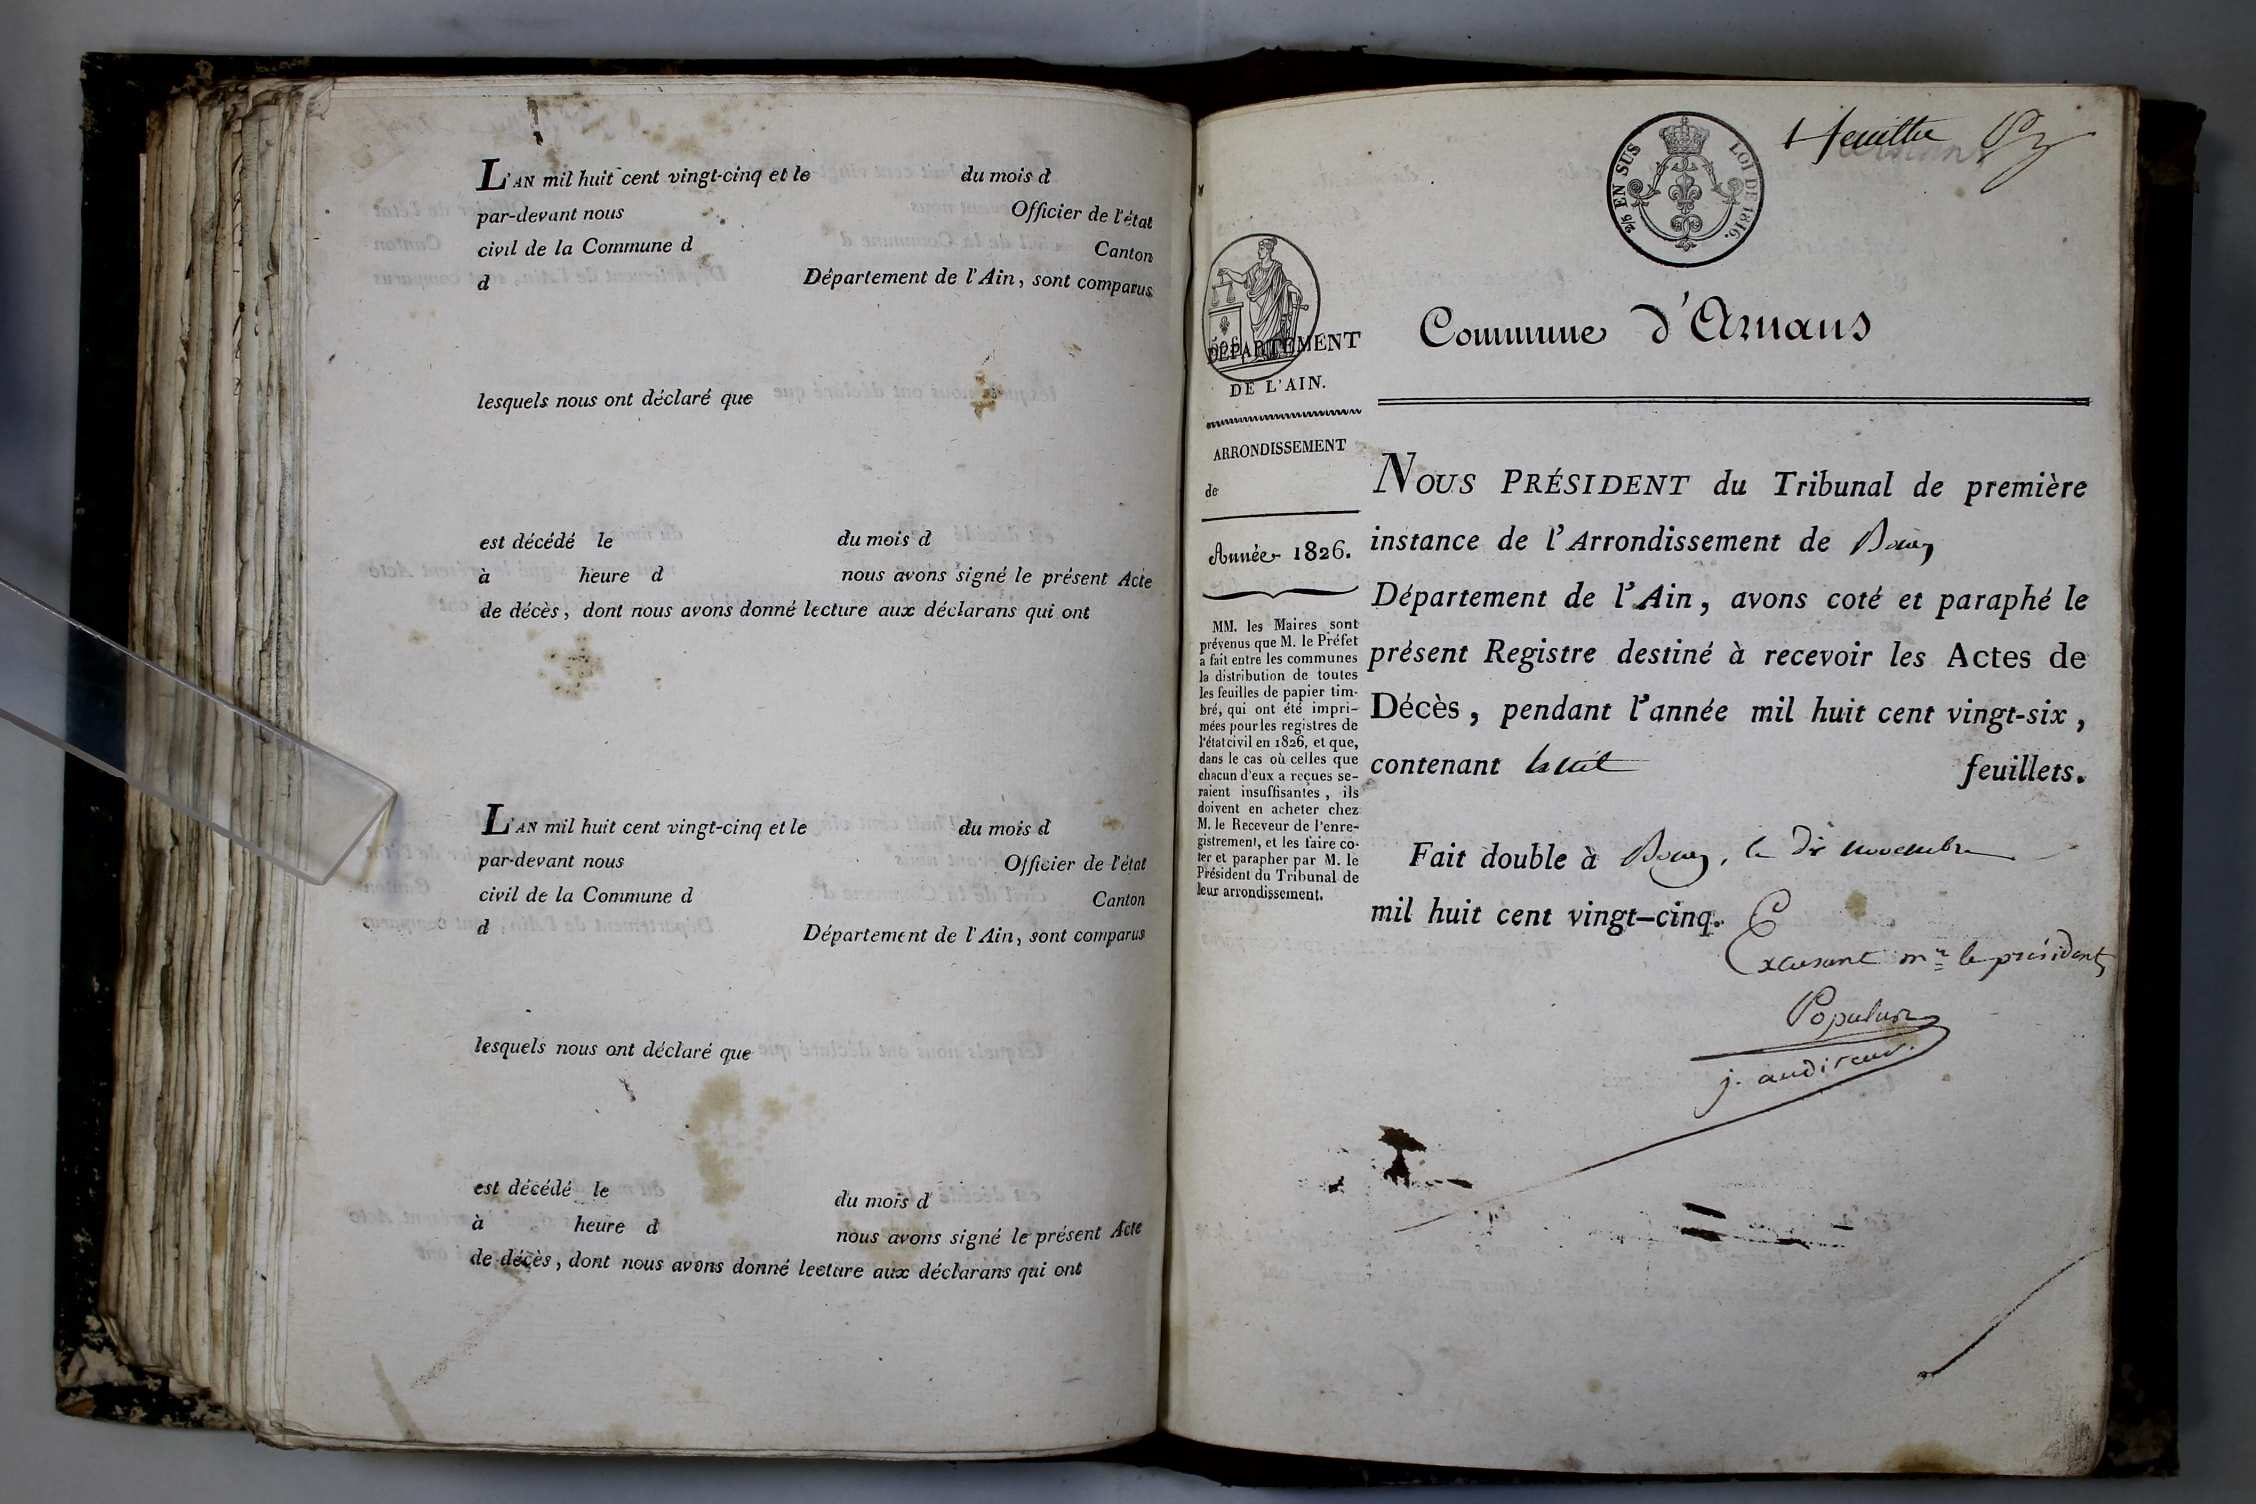 L'AN mil huit cent vingt-cinq et le du mois d
par-devant nous Officier de l'état
civil de la Commune d Canton
d Département de l'Ain, sont comparus
lesquels nous ont déclaré que
est décédé le du mois d
à heure d nous avons signé le présent Acte
de décès, dont nous avons donné lecture aux déclarans qui ont
L'AN mil huit cent vingt-cinq et le du mois d
par-devant nous Officier de l'état
civil de la Commune d Canton
d Département de l'Ain, sont comparus
lesquels nous ont déclaré que
est décédé le du mois d
à heure d nous avons signé le présent Acte
de décès, dont nous avons donné lecture aux déclarans qui ont
2/5 EN SUS LOI DE 1816.
DÉPARTEMENT
DE L'AIN.
ARRONDISSEMENT
de
Année 1826.
MM. les Maires sont
prévenus que M. le Préfet
a fait entre les communes
la distribution de toutes
les feuilles de papier tim-
bré, qui ont été impri-
mées pour les registres de
l'état civil en 1826, et que,
dans le cas où celles que
chacun d'eux a reçues se-
raient insuffisantes, ils
doivent en acheter chez
M. le Receveur de l'enre-
gistrement, et les faire co-
ter et parapher par M. le
Président du Tribunal de
leur arrondissement.
Commune d'Arnans
NOUS PRÉSIDENT du Tribunal de première
instance de l'Arrondissement de Bourg
Département de l'Ain, avons coté et paraphé le
présent Registre destiné à recevoir les Actes de
Décès, pendant l'année mil huit cent vingt-six,
contenant huit feuillets.
Fait double à Bourg, le dix novembre
mil huit cent vingt-cinq.
Excusant mr le président
Populus
j. auditeur.